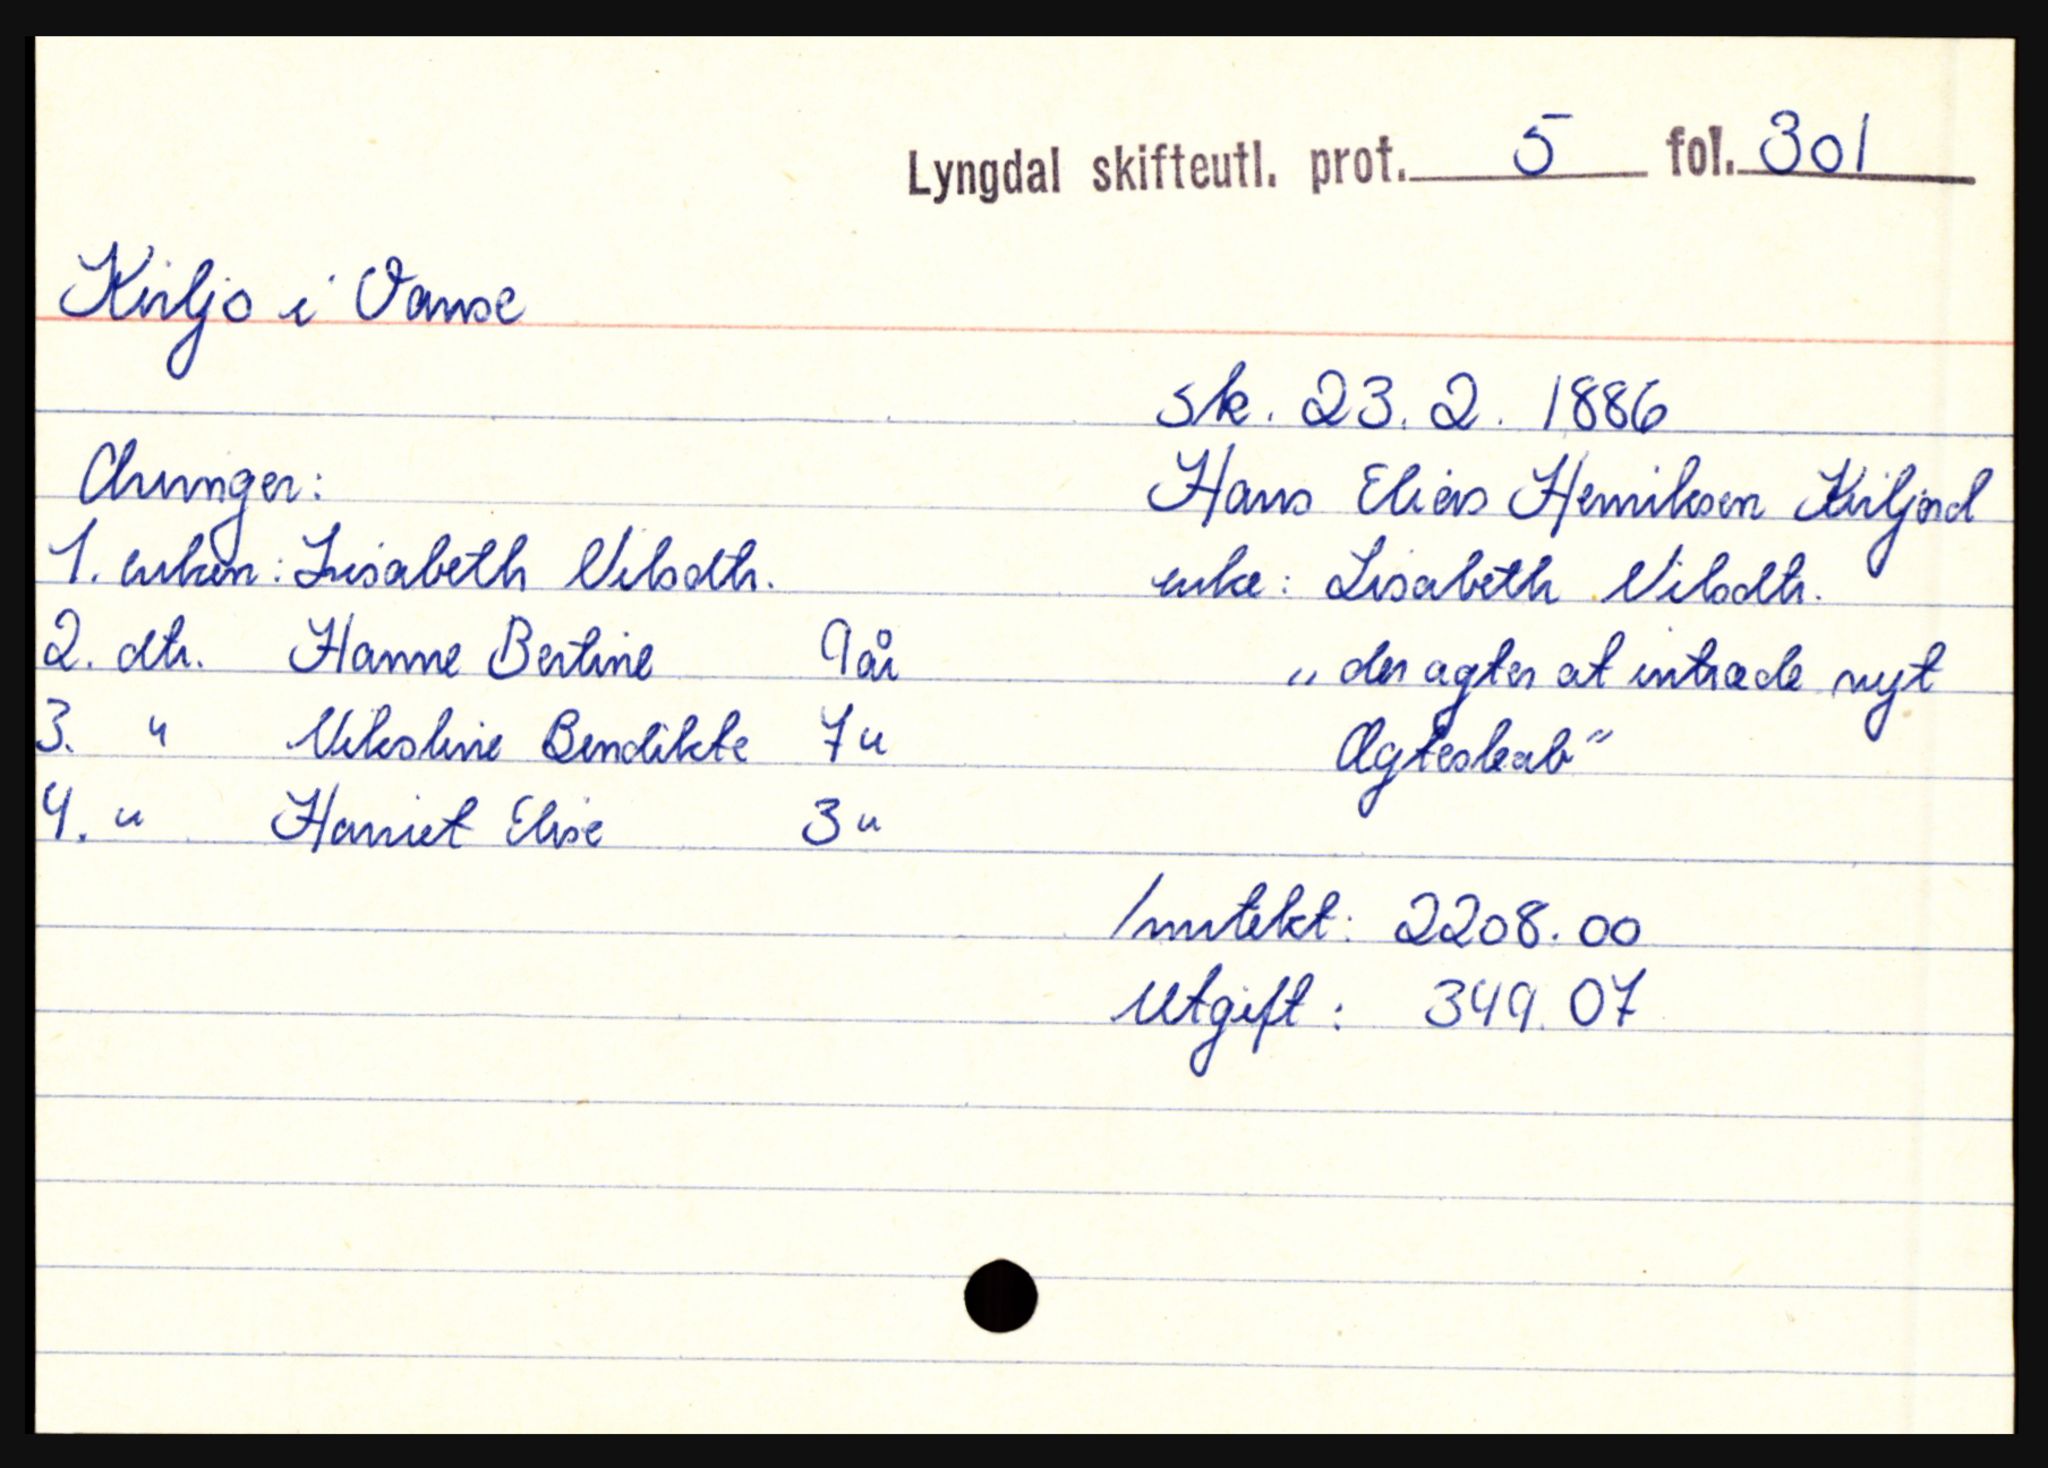 Lyngdal skifteutl. prot. 5 fol. 301
Kiljo i Vanse
sk. 23. 2. 1886
Hans Elias Henriksen Kiljord
enke: Lisabeth Nilsdtr.
„der agter at intræde nyt
Ægteskab"
Arvinger:
1. enken: Lisabeth Nilsdtr.
2. dtr. Hanne Bertine 9 år
3. " Nikoline Bendikte 7 "
4. " Harriet Elise 3 "
Inntekt: 2208.00
Utgift: 349.07